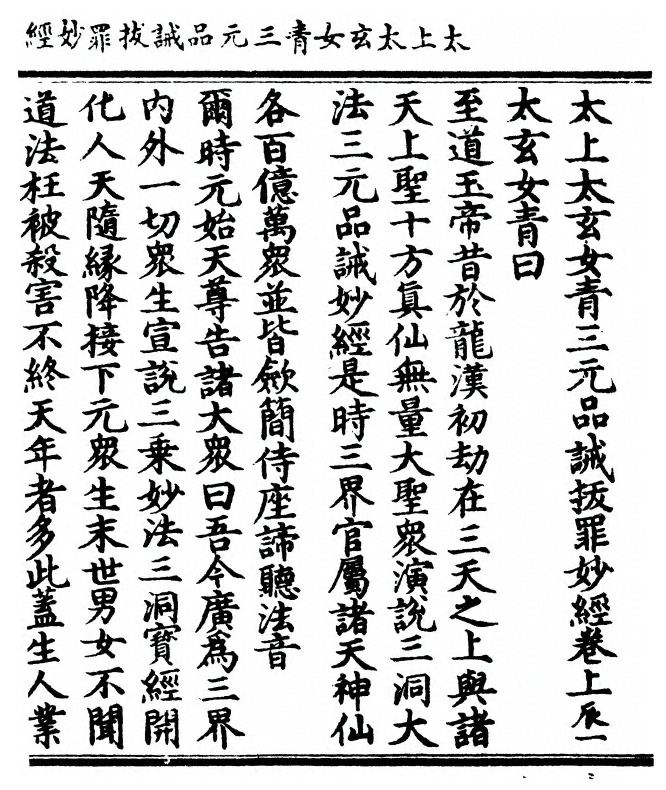 太上太玄女青三元品誡拔罪妙經
太上太玄女青三元品誡拔罪妙經卷上 辰一
太玄女青曰
至道玉帝昔於龍漢初劫在三天之上與諸
天上聖十方真仙無量大聖眾演說三洞大
法三元品誡妙經是時三界官屬諸天神仙
各百億萬眾並皆斂簡侍座諦聽法音
爾時元始天尊告諸大眾曰吾今廣為三界
內外一切眾生宣說三乘妙法三洞寶經開
化人天隨緣降接下元眾生末世男女不聞
道法枉被殺害不終天年者多此蓋生人業